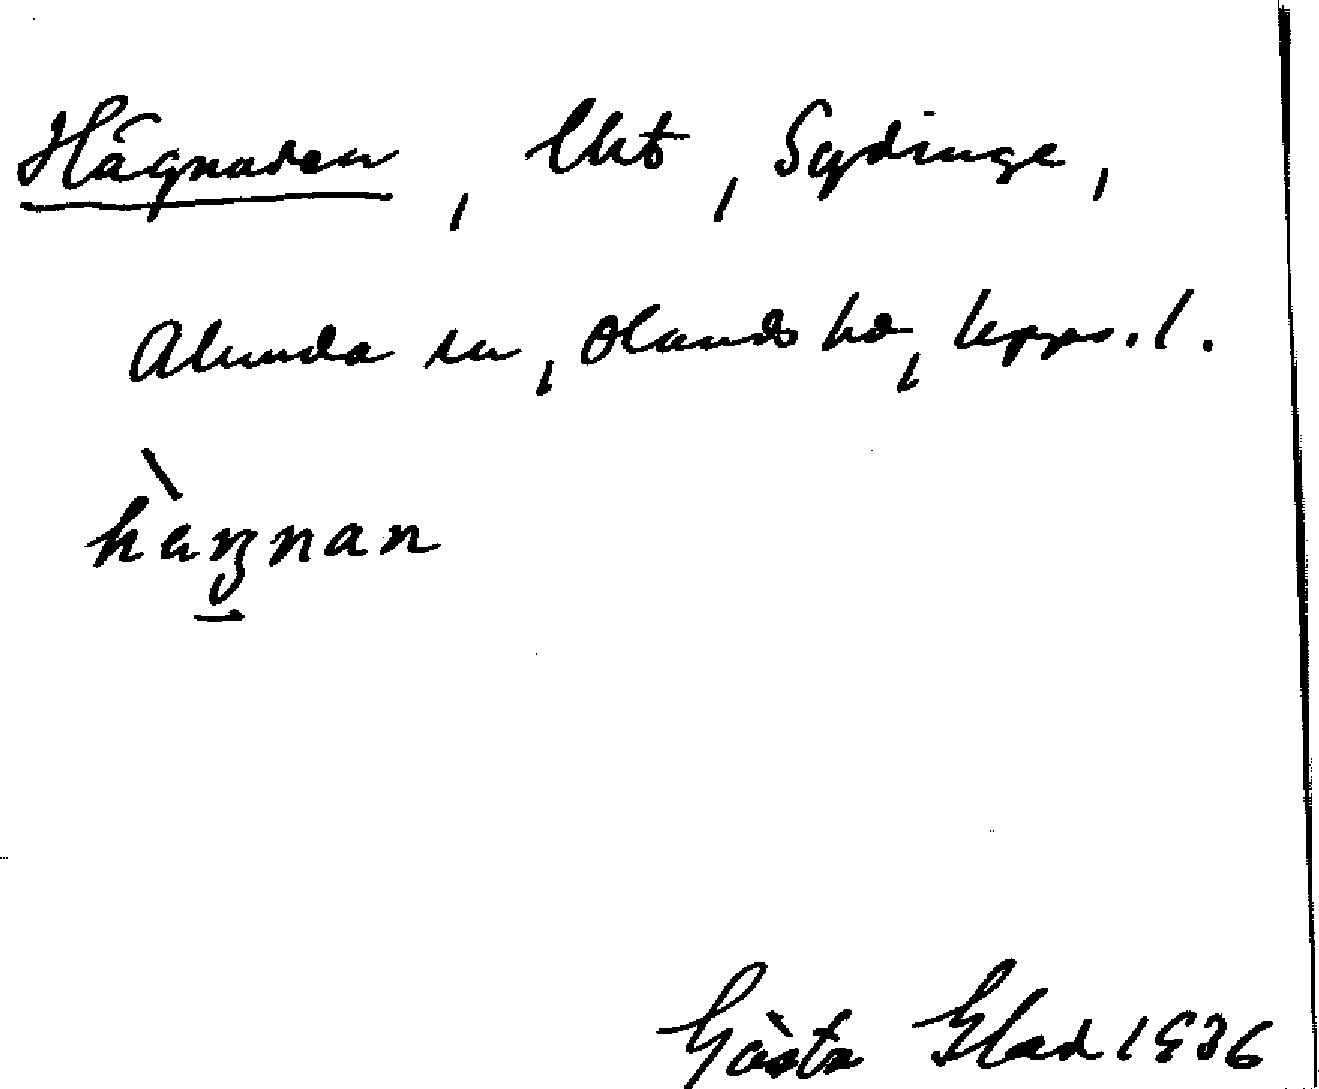 Hägnaden, lht, Sydinge,
Alunda sn, Olands hd, Upps.l.
Gösta Blad 1936